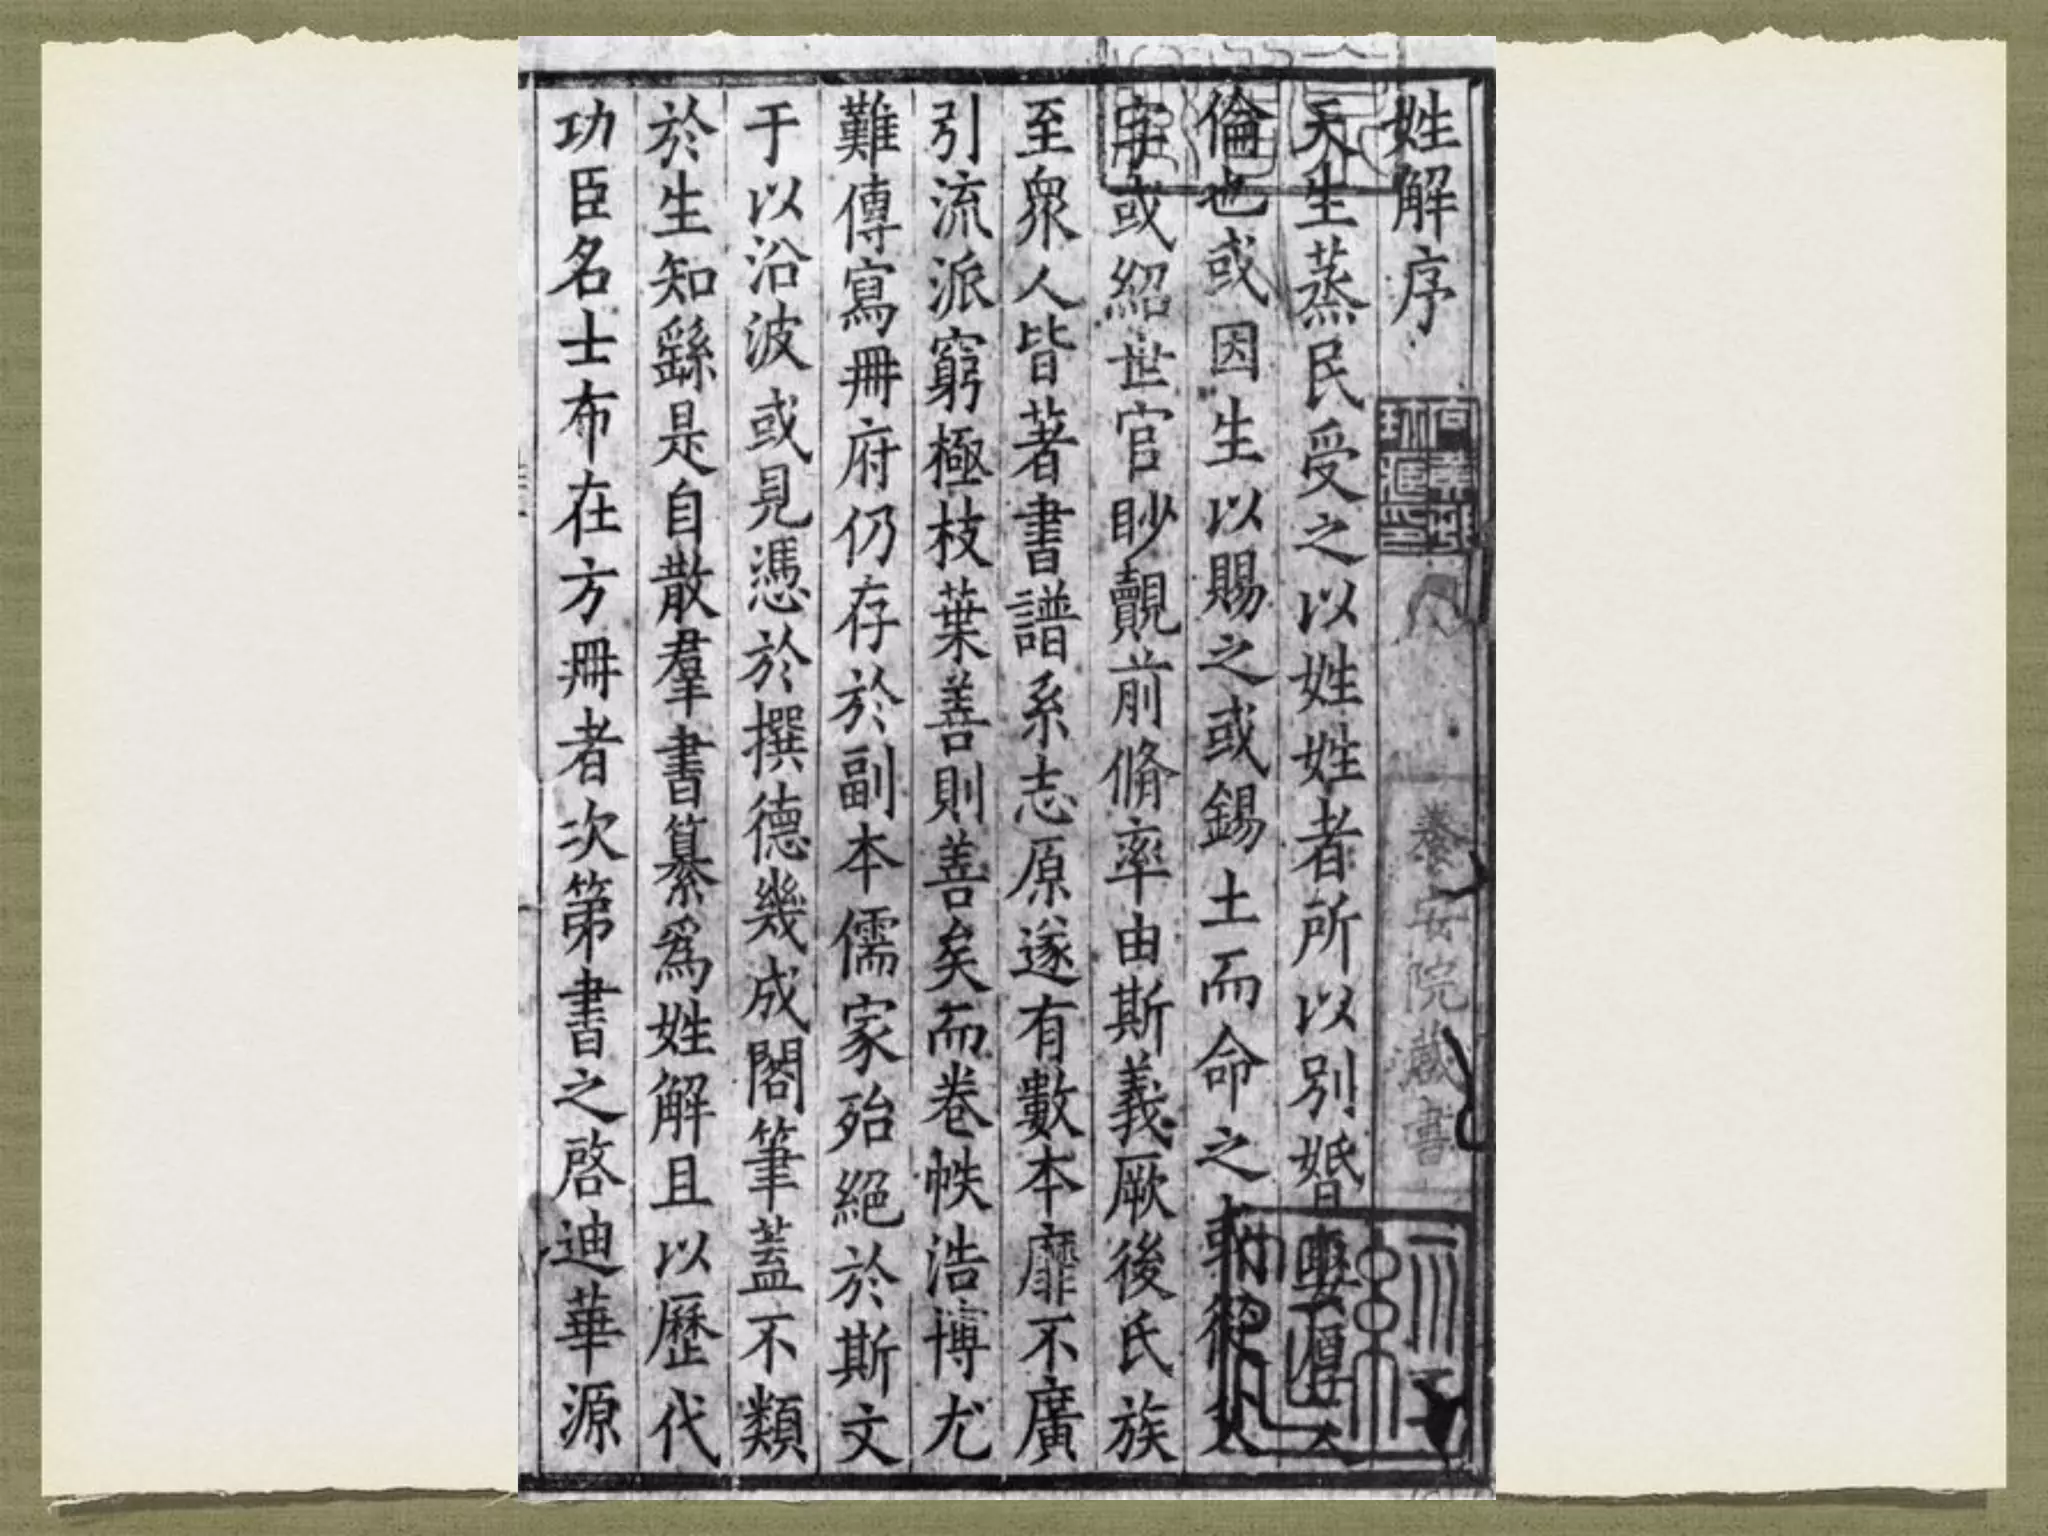 姓解序
向黄邨珍藏印
養安院藏書
天生蒸民受之以姓姓者所以別婚娶厚人
倫也或因生以賜之或錫土而命之從父
字或紹世官眇覿前脩率由斯義厥後氏族
至衆人皆著書譜系志原遂有數本靡不廣
引流派窮極枝葉善則善矣而卷帙浩博尤
難傳寫冊府仍存於副本儒家殆絕於斯文
于以沿波或見憑於撰德幾成閣筆蓋不類
於生知繇是自散羣書纂爲姓解且以歷代
功臣名士布在方冊者次第書之啓迪華源